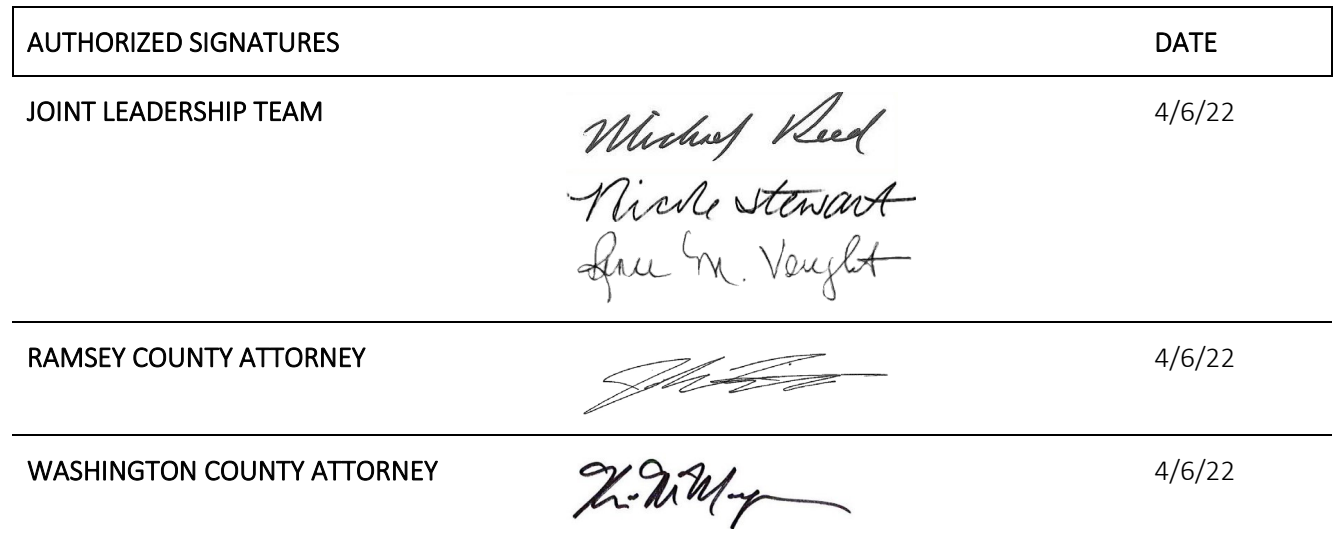 AUTHORIZED SIGNATURES DATE
JOINT LEADERSHIP TEAM Michael Reed 4/6/22
Nicole Stewart
M. Vought
RAMSEY COUNTY ATTORNEY 4/6/22
WASHINGTON COUNTY ATTORNEY 4/6/22